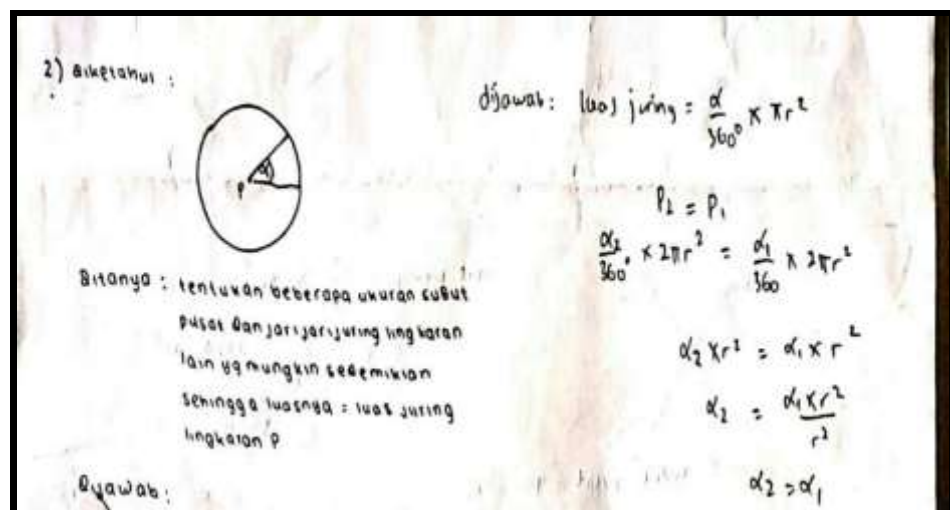 2) Diketahui :
α
P
Ditanya : tentukan beberapa ukuran sudut
pusat dan jari jari juring lingkaran
lain yg mungkin sedemikian
sehingga luasnya = luas juring
lingkaran P
Dijawab :
dijawab : luas juring = α/360° × πr²
P₂ = P₁
α₂/360° × 2πr² = α₁/360 × 2πr²
α₂ × r² = α₁ × r²
α₂ = α₁ × r²/r²
α₂ = α₁